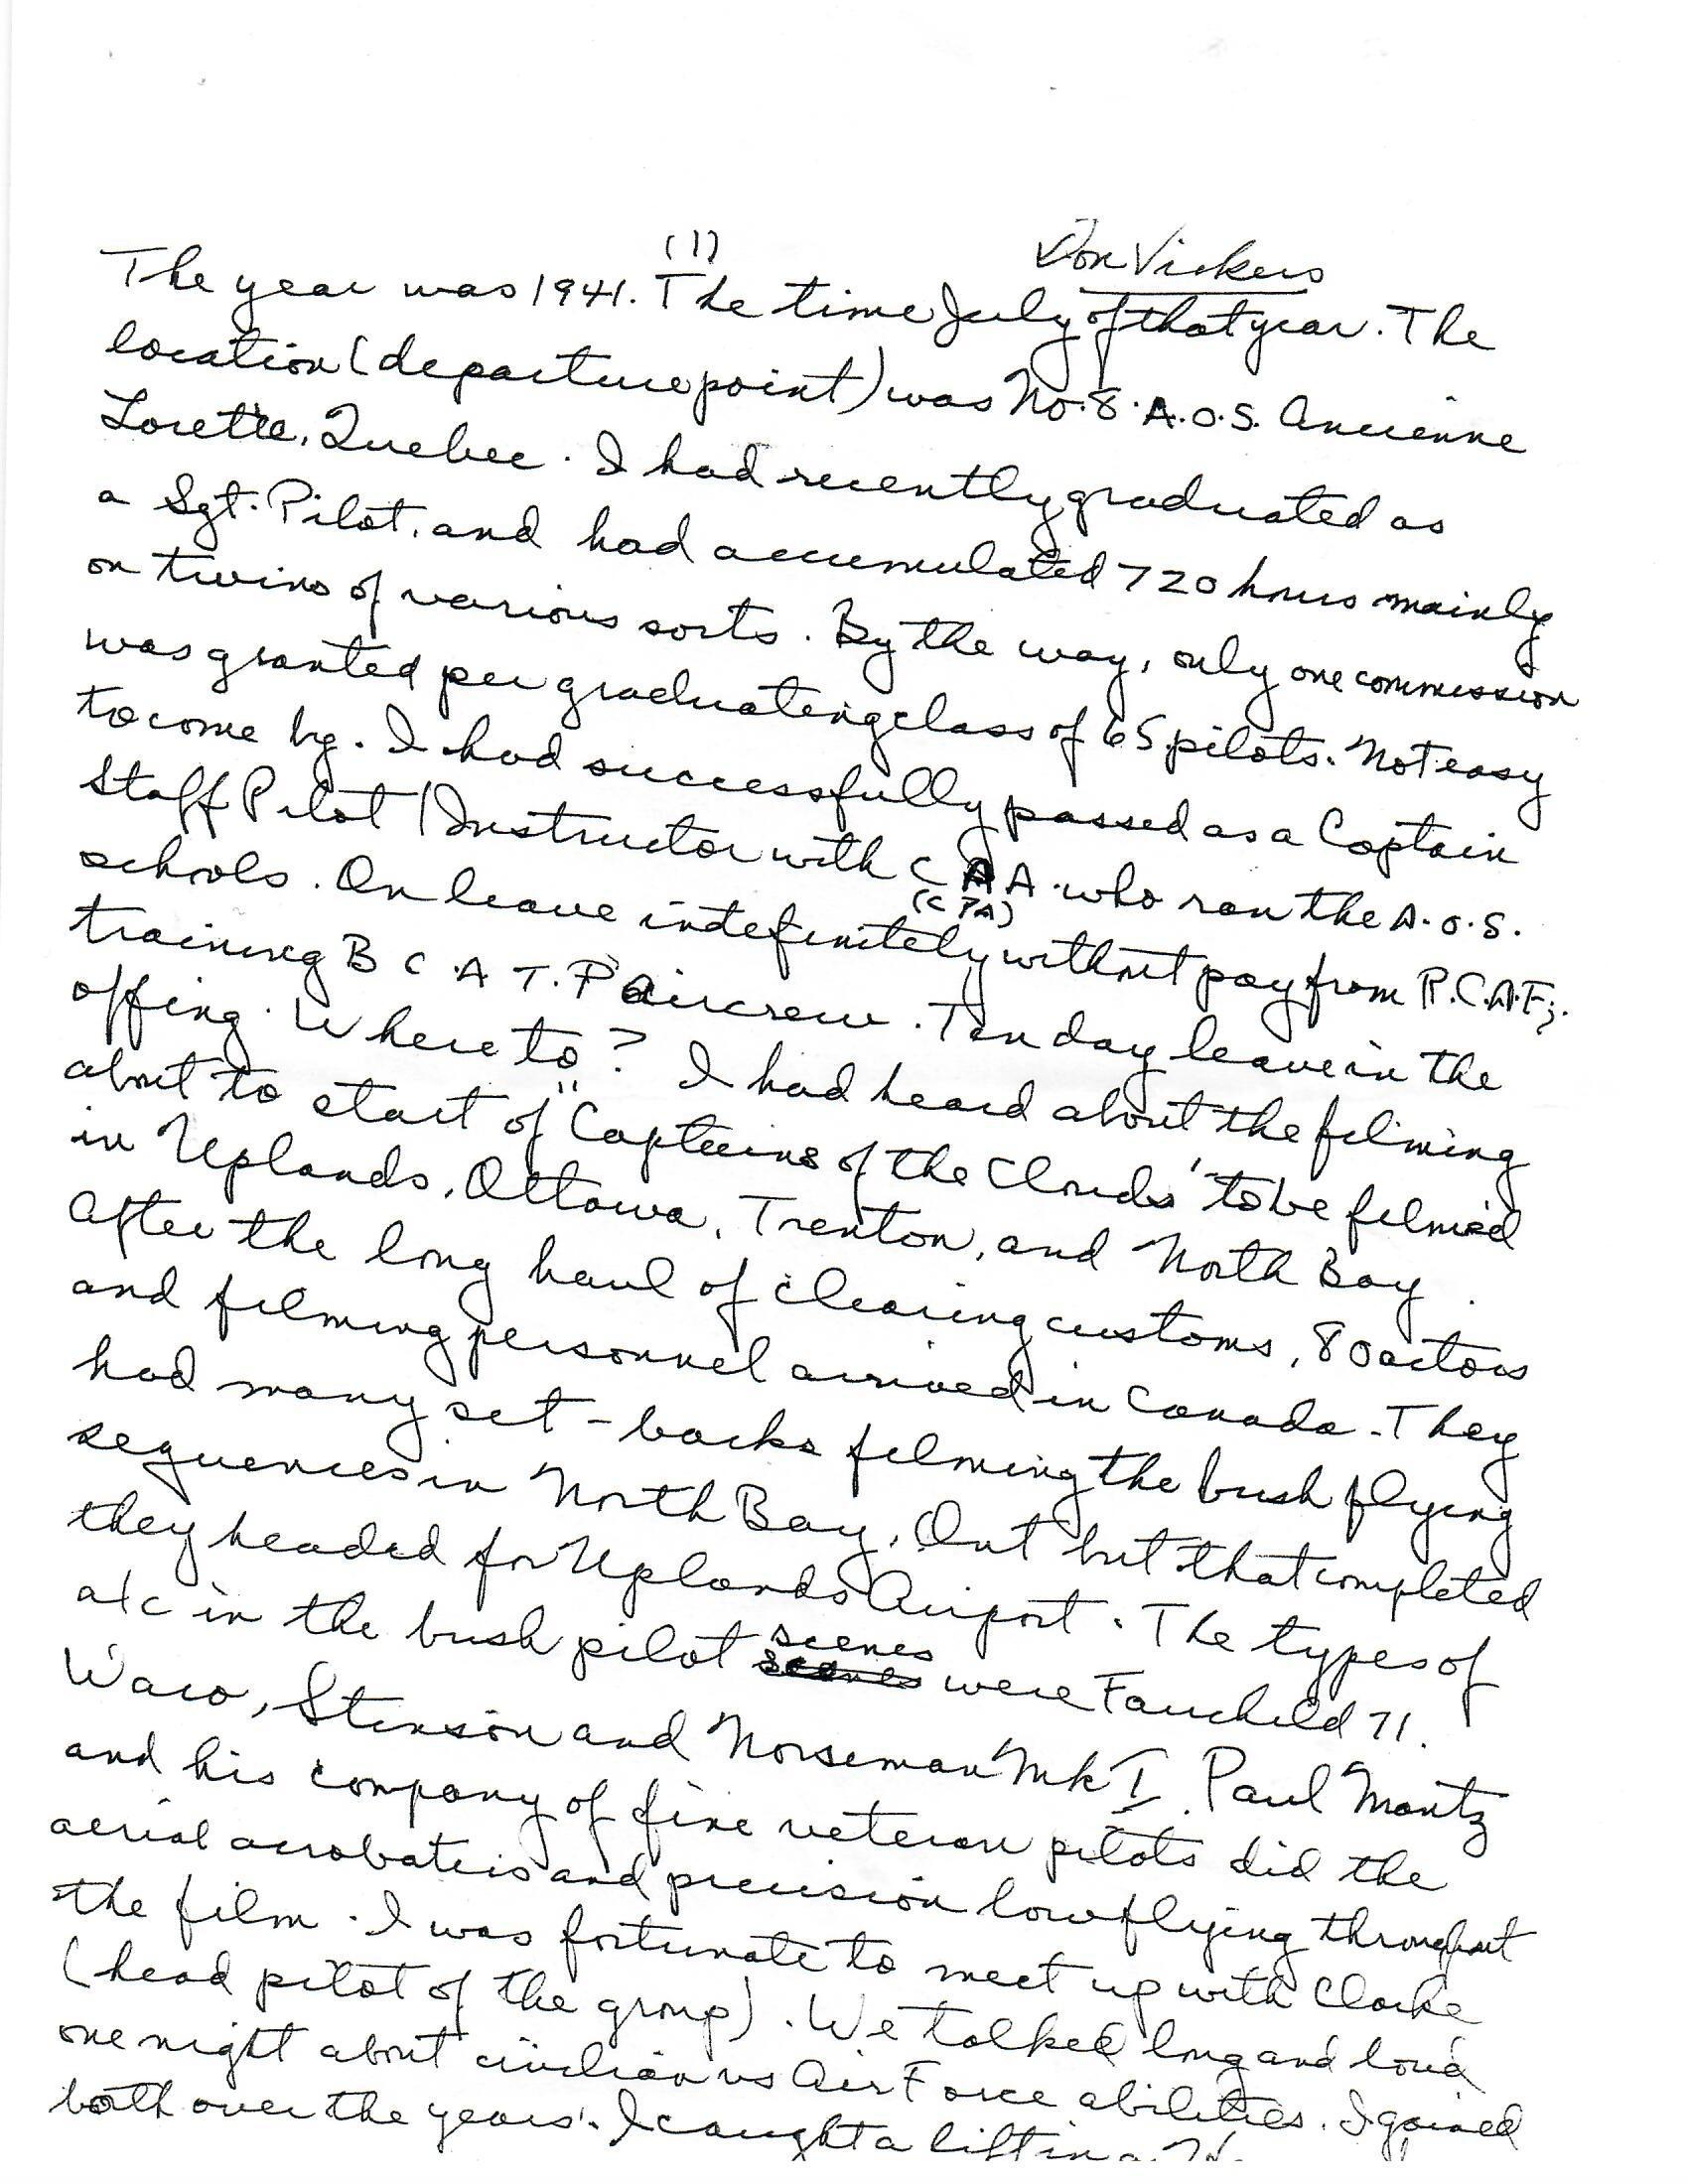 (1) Don Vickers
The year was 1941. The time July of that year. The
location (departure point) was No. 8. A.O.S. Ancienne
Lorette, Quebec. I had recently graduated as
a Sgt. Pilot, and had accumulated 720 hours mainly
on twins of various sorts. By the way, only one commission
was granted per graduating class of 65 pilots. Not easy
to come by. I had successfully passed as a Captain
Staff Pilot / Instructor with C A A. who ran the A.O.S.
(CPA)
schools. On leave indefinitely without pay from R.C.A.F;.
training B C.A T.P aircrew. Ten day leave in the
offing. Where to? I had heard about the filming
about to start of "Captains of the Clouds' to be filmed
in Uplands, Ottawa, Trenton, and North Bay.
After the long haul of clearing customs, 80 actors
and filming personnel arrived in Canada. They
had many set-backs filming the bush flying
sequences in North Bay, Ont but that completed
they headed for Uplands Airport. The types of
a/c in the bush pilot scenes were Fairchild 71.
Waco, Stinson and Norseman Mk I. Paul Mantz
and his company of fine veteran pilots did the
aerial acrobatics and precision low flying throughout
the film. I was fortunate to meet up with Clarke
(head pilot of the group). We talked long and loud
one night about civilian vs Air Force abilities. I gained
both over the years. I caught a lift in a